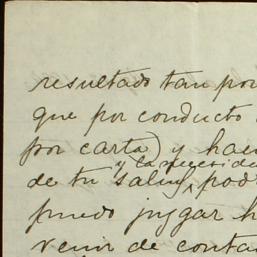 resultado tan por
que por conducto
por carta) y hac
y la necesida
de tu salud, pod
puedo juzgar h
venir de conta